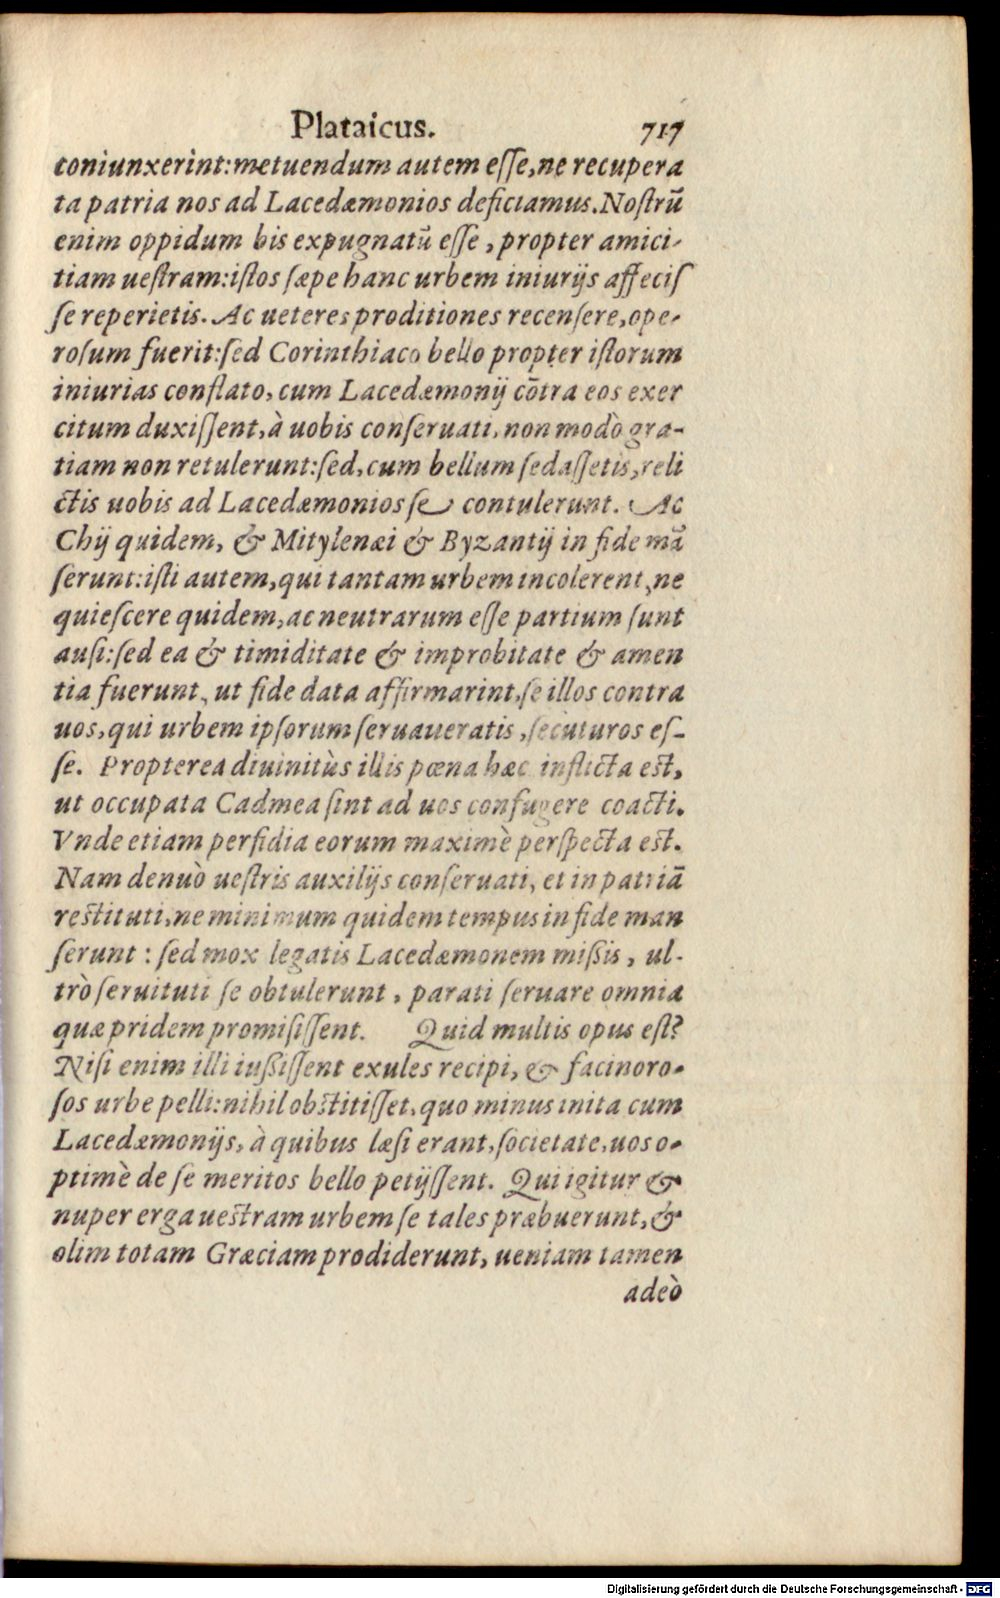 Plataicus. 717
coniunxerint: metuendum autem eſſe, ne recupera
ta patria nos ad Lacedæmonios deficiamus. Noſtrū
enim oppidum bis expugnatū eſſe, propter amici-
tiam ueſtram: iſtos ſæpe hanc urbem iniurijs affeciſ
ſe reperietis. Ac ueteres proditiones recenſere, ope-
roſum fuerit: ſed Corinthiaco bello propter iſtorum
iniurias conflato, cum Lacedæmonij cōtra eos exer
citum duxiſſent, à uobis conſeruati, non modò gra-
tiam non retulerunt: ſed, cum bellum ſedaſſetis, reli
ctis uobis ad Lacedæmonios ſe contulerunt. Ac
Chij quidem, & Mitylenæi & Byzantij in fide mā
ſerunt: iſti autem, qui tantam urbem incolerent, ne
quieſcere quidem, ac neutrarum eſſe partium ſunt
auſi: ſed ea & timiditate & improbitate & amen
tia fuerunt, ut fide data affirmarint, ſe illos contra
uos, qui urbem ipſorum ſeruaueratis, ſecuturos eſ-
ſe. Propterea diuinitùs illis pœna hæc inflicta est,
ut occupata Cadmea ſint ad uos confugere coacti.
Vnde etiam perfidia eorum maximè perſpecta est.
Nam denuò ueſtris auxilijs conſeruati, et in patriā
restituti, ne minimum quidem tempus in fide man
ſerunt: ſed mox legatis Lacedæmonem miſsis, ul-
trò ſeruituti ſe obtulerunt, parati ſeruare omnia
quæ pridem promiſiſſent. Quid multis opus eſt?
Niſi enim illi iuſsiſſent exules recipi, & facinoro-
ſos urbe pelli: nihil obstitiſſet, quo minus inita cum
Lacedæmonijs, à quibus læſi erant, ſocietate, uos o-
ptimè de ſe meritos bello petijſſent. Qui igitur &
nuper erga uestram urbem ſe tales præbuerunt, &
olim totam Græciam prodiderunt, ueniam tamen
adeò
Digitalisierung gefördert durch die Deutsche Forschungsgemeinschaft - DFG